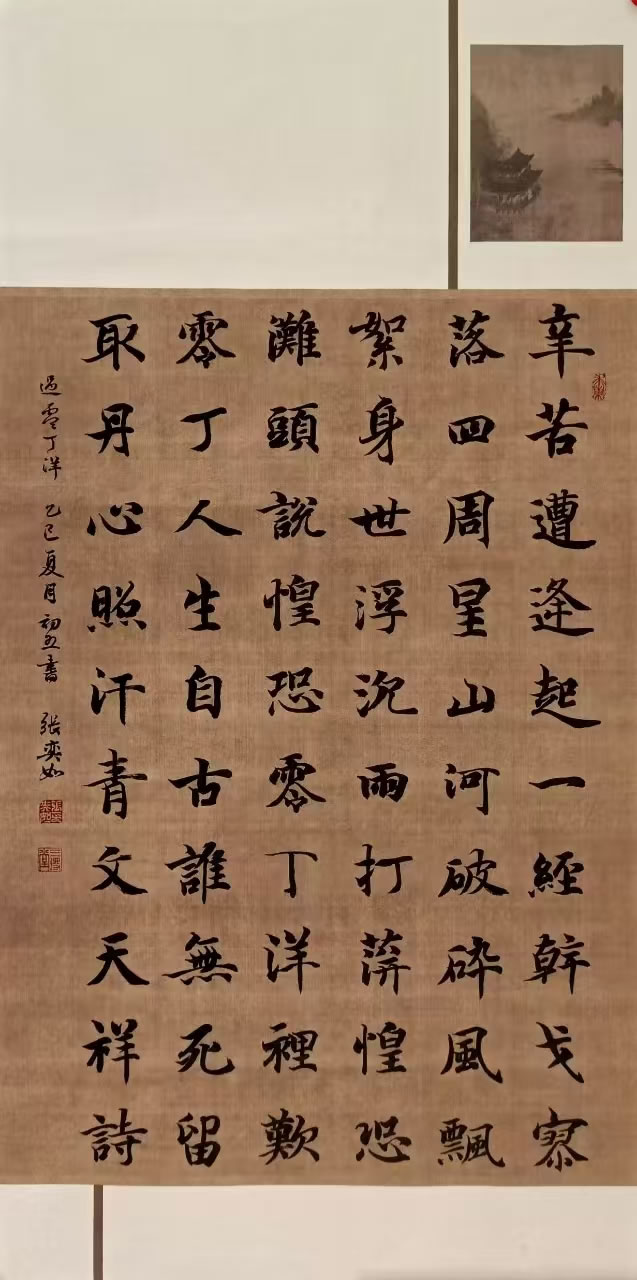 辛苦遭逢起一經幹戈寥
落四周星山河破碎風飄
絮身世浮沉雨打萍惶恐
灘頭說惶恐零丁洋裡歎
零丁人生自古誰無死留
取丹心照汗青文天祥詩
過零丁洋 乙巳夏月初五書 張奕如